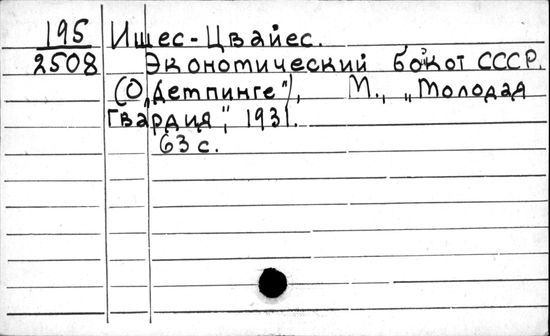 195 Ишес-Цвайес.
2508 Экономический бойкот СССР.
(О „Детпинге"), М., „Молодая
Гвардия", 1931.
63 с.